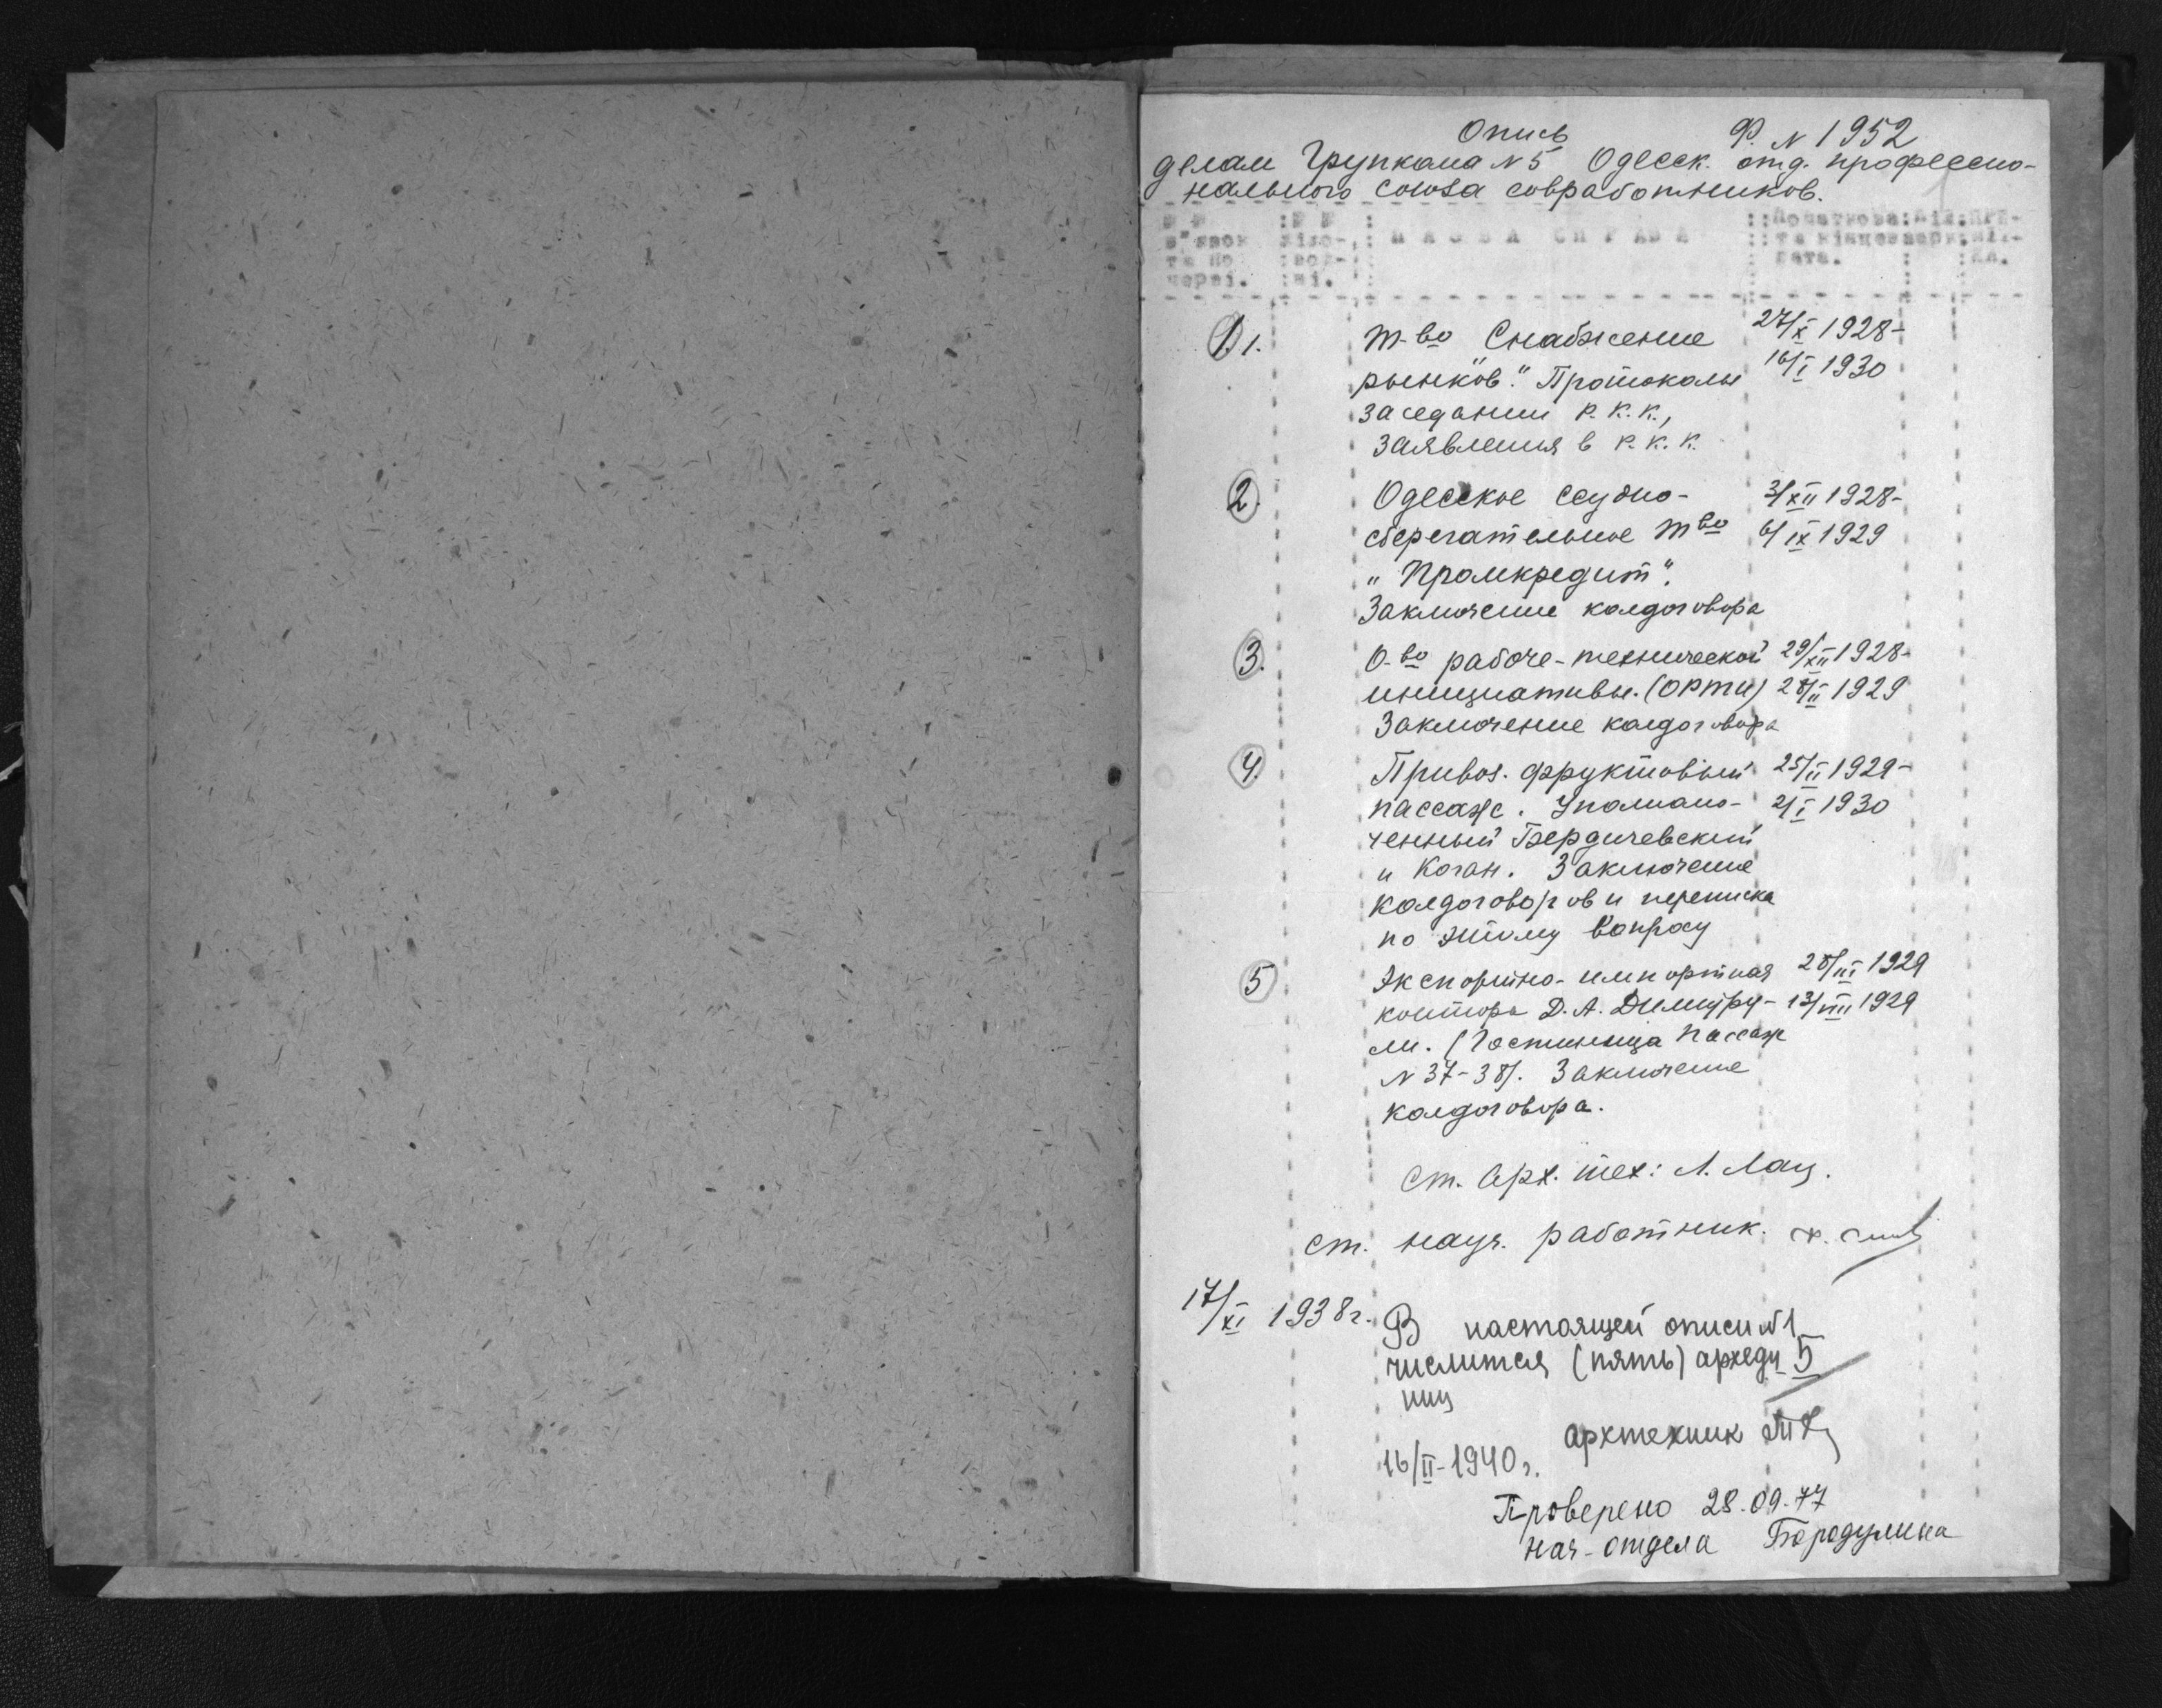 Опись Ф. № 1952
делам Групкома № 5 Одесск. отд. профессио-
нального союза совработников.
№ № : № № : Початкова: Арк. При-
в'язок НАЗВА СПРАВИ та кінцева мі-
та по дата.
черзі.
1. 1. Т-во „Снабжение 27/X 1928-
рынков". Протоколы 16/I 1930
заседании Р.К.К.,
заявления в Р.К.К.
2. Одесское ссудно- 3/XII 1928-
сберегательное т-во 6/IX 1929
„Промкредит".
Заключение колдоговора
3. О-во рабоче-технической 29/XII 1928-
инициативы. (ОРТИ) 28/II 1929
Заключение колдоговора
4. Привоз. фруктовый 25/II 1929-
пассаж. Уполномо- 2/I 1930
ченный Бердичевский
и Коган. Заключение
колдоговоров и переписка
по этому вопросу
5 Экспортно-импортная 28/III 1929
контора Д.А. Димитру- 13/VIII 1929
ли. (Гостиница Пассаж
№ 37-38). Заключение
колдоговора.
Ст. Арх. тех: Л. Лац.
Ст. науч. работник.
17/XI 1938 г.
В настоящей описи № 1
числится (пять) архедu 5
ниц
архтехник
16/II-1940 г.
Проверено 28.09.77
нач-отдела Бородулина